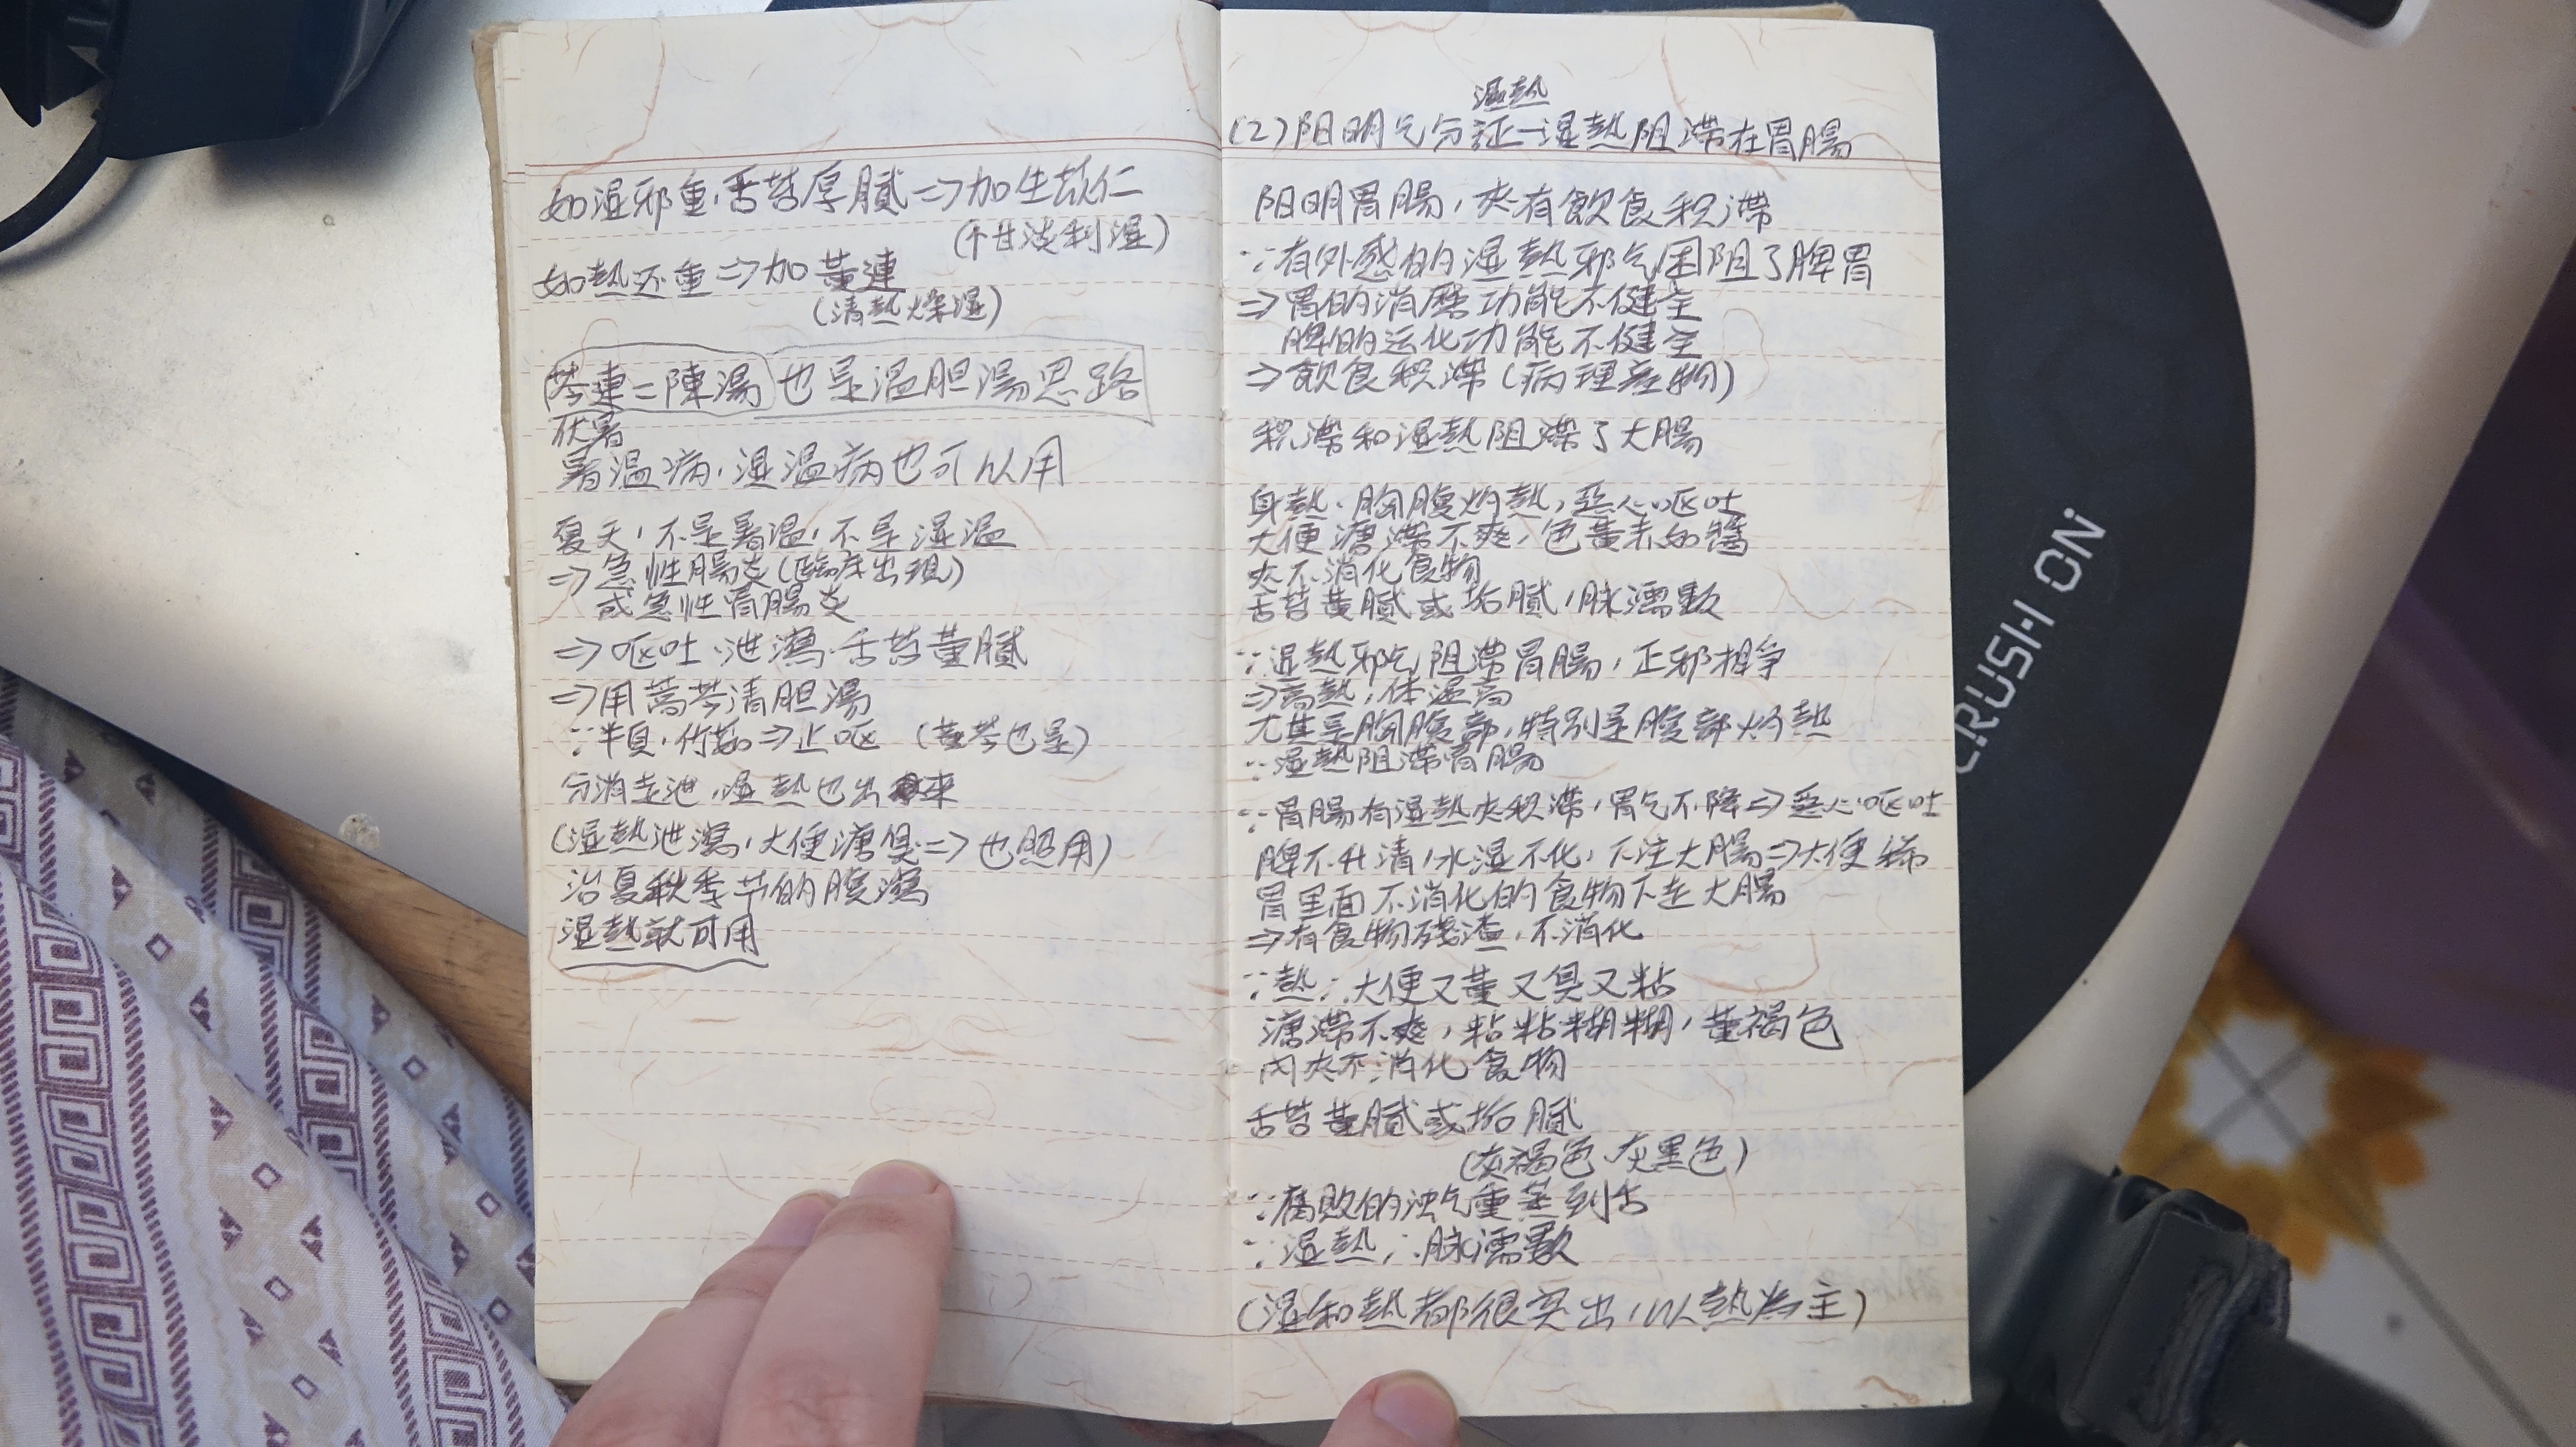 如湿邪重，舌苔厚腻⇒加生苡仁
(甘淡利湿)
如熱还重⇒加黄連
(清熱燥湿)
芩連二陳湯 也是温胆湯思路
伏暑
暑温病，湿温病也可以用
夏天，不是暑温，不是湿温
⇒急性腸炎(臨床出現)
或急性胃腸炎
⇒呕吐、泄瀉、舌苔黄腻
⇒用蒿芩清胆湯
∵半夏，竹茹⇒止呕 (黄芩也是)
分消走泄，湿熱也出来
(湿熱泄瀉，大便溏臭⇒也照用)
治夏秋季节的腹瀉
湿熱就可用
湿熱
(2)阳明气分证—湿熱阻滞在胃腸
阳明胃腸，夹有飲食积滞
∵有外感的湿熱邪气困阻了脾胃
⇒胃的消磨功能不健全
脾的运化功能不健全
⇒飲食积滞(病理产物)
积滞和湿熱阻滞了大腸
身熱、胸腹灼熱，恶心呕吐
大便溏滞不爽，色黄赤如醬
夹不消化食物
舌苔黄腻或垢腻，脉濡數
∵湿熱邪气阻滞胃腸，正邪相争
⇒高熱，体温高
尤其是胸腹部，特别是腹部灼熱
∵湿熱阻滞胃腸
∵胃腸有湿熱夹积滞，胃气不降⇒恶心呕吐
脾不升清，水湿不化，下注大腸⇒大便稀
胃里面不消化的食物下走大腸
⇒有食物残渣，不消化
∵熱∴大便又黄又臭又粘
溏滞不爽，粘粘糊糊，黄褐色
内夹不消化食物
舌苔黄腻或垢腻
(灰褐色、灰黑色)
∵腐败的浊气重蒸到舌
∵湿熱∴脉濡數
(湿和熱都很突出，以熱為主)
CRUSH ON